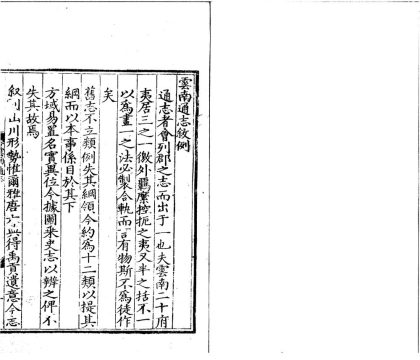 雲南通志叙例
通志者會列郡之志而出于一也夫雲南二十府
夷居三之一徼外羈縻控扼之夷又半之括不一
以為畫一之法必製合軌而言有物斯不為徒作
矣
舊志不立類例失其綱領今約為十二類以提其
綱而以本事係目於其下
方域易置名實異位今據圖乘史志以辨之俾不
失其故焉
叙列山川形勢惟爾雅唐六典得禹貢遺意今志